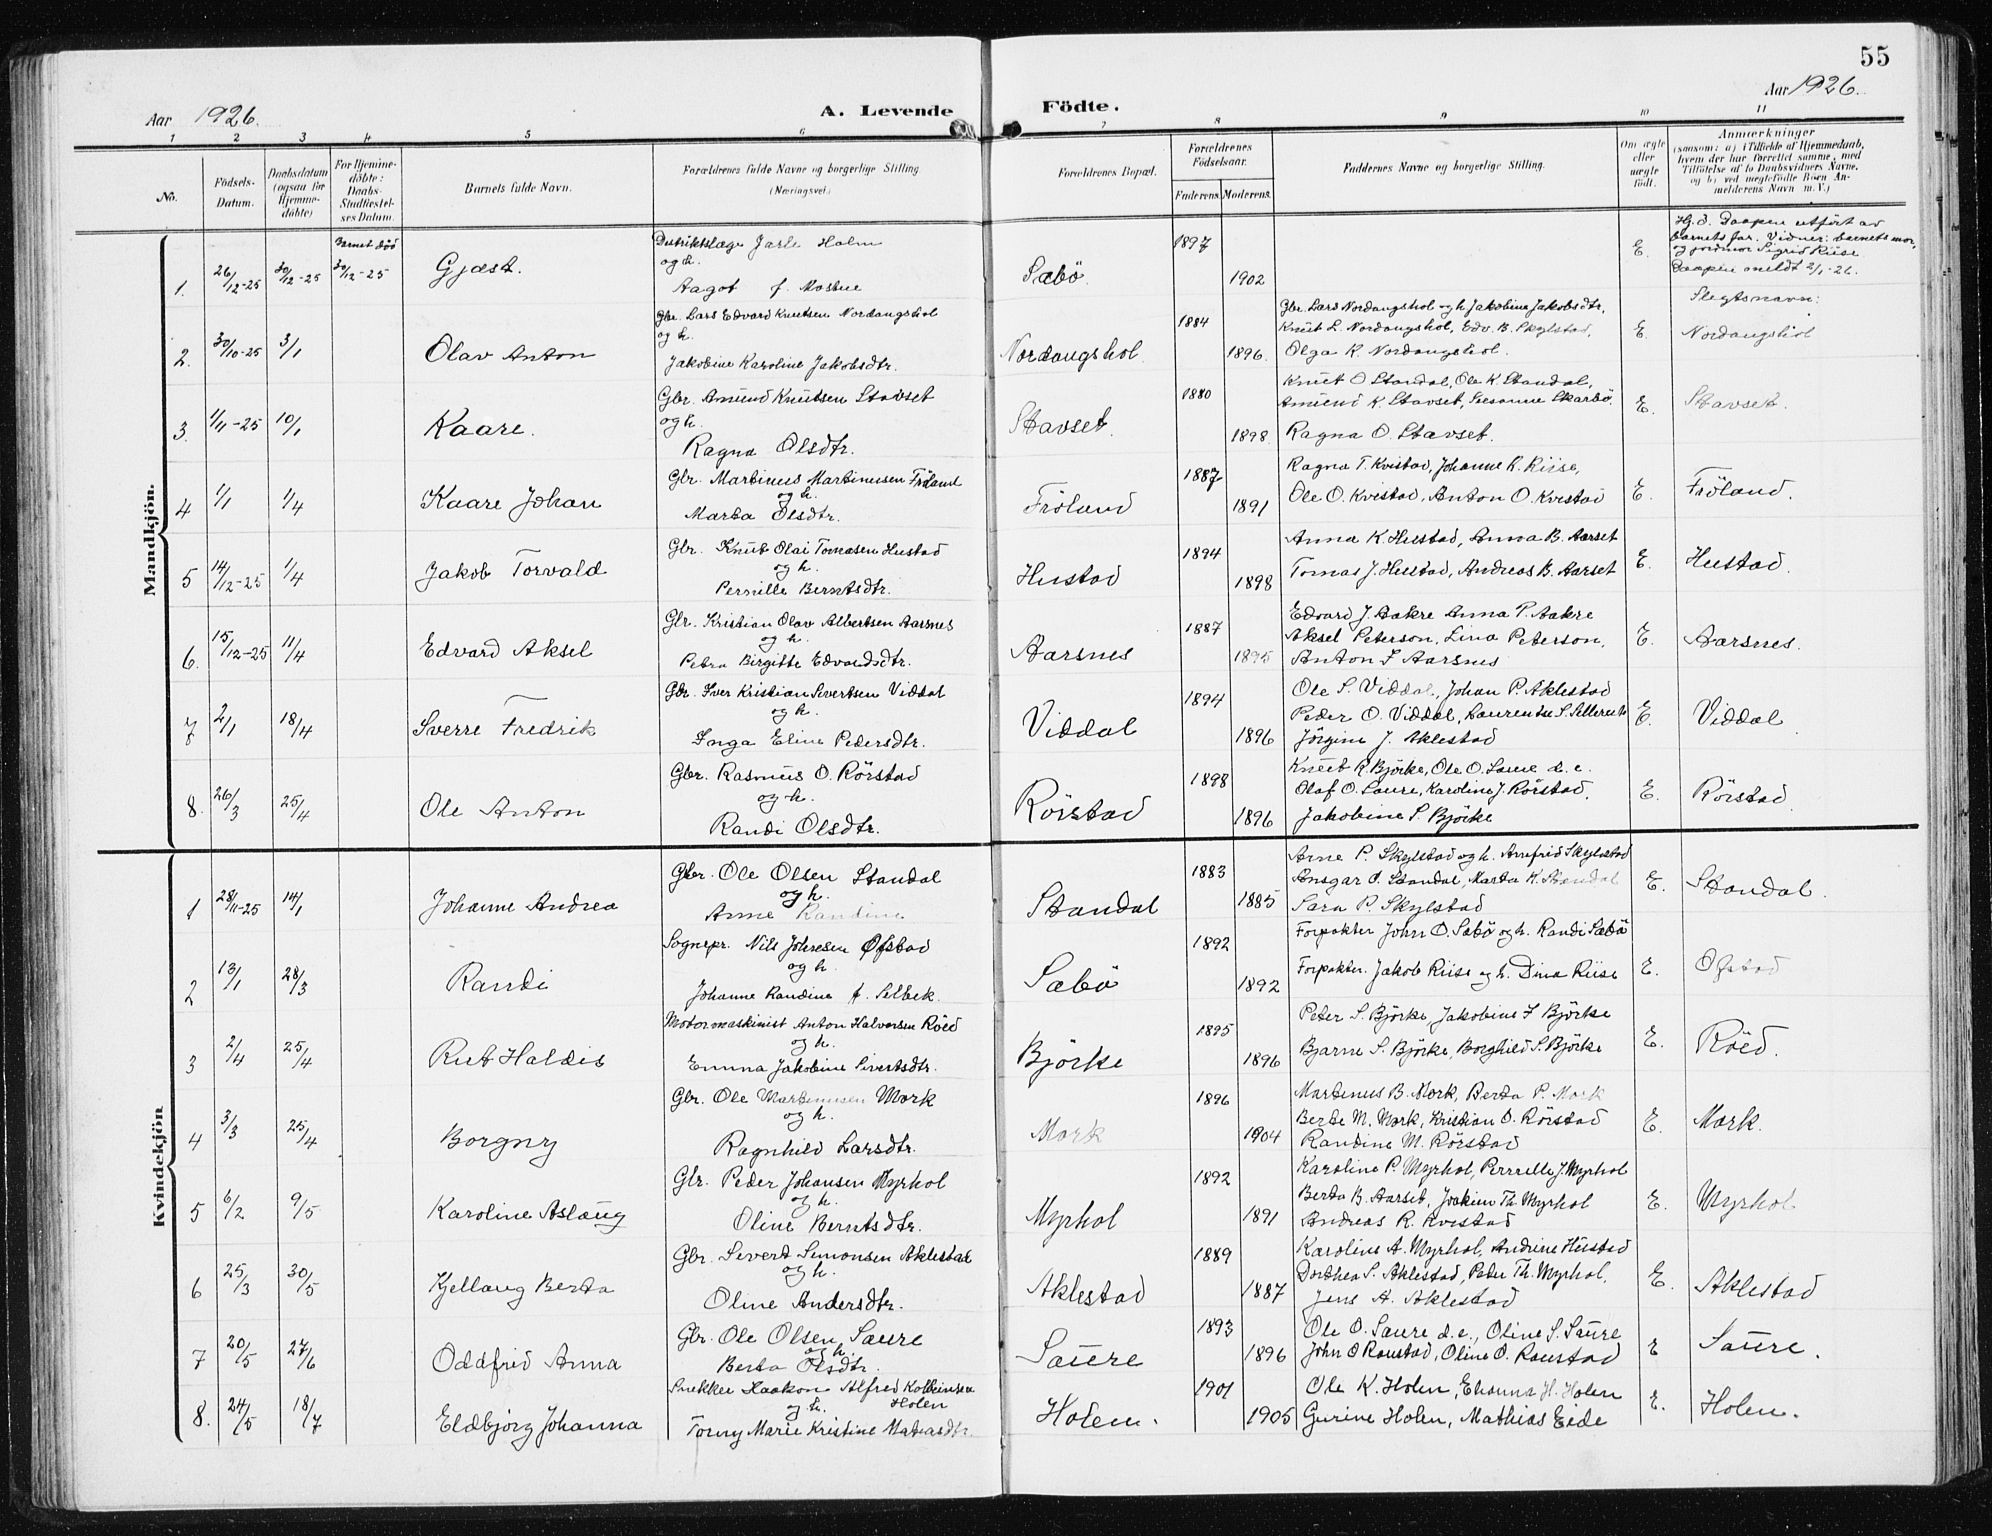 55
Aar 1926.
A. Levende
Födte.
Aar 1926.
1 2 3 4 5 6 7 8 9 10 11
No.
Födsels-Datum.
Daabsdatum (ogsaa for Hjemmedöbte)
For Hjemmedöbte: Daabs-Stadfæstelses Datum.
Barnets fulde Navn.
Forældrenes fulde Navne og borgerlige Stilling (Næringsvei.)
Forældrenes Bopæl.
Forældrenes Födselsaar.
Faderens. Moderens.
Faddernes Navne og borgerlige Stilling.
Om ægte eller uægte födt.
Anmærkninger
(saasom: a) i Tilfælde af Hjemmedaab, hvem der har forrettet samme, med Tilföielse af to Daabsvidners Navne. og b) ved uægtefödte Börn Anmelderens Navn m. V.)
Mandkjön.
1. 26/12-25 30/12-25 Barnet död 30/12-25 Gjæst.
Distriktslæge Jarle Holm
og h.
Aagot f. Mostue
Sæbö 1897 1902 E.
Hj.d. Daapen utfört av
barnets far. Vidner: barnets mor
og jordmor Sigrid Riise
Daapen meldt 2/1-26.
2. 30/10-25 3/1 Olav Anton
Gbr. Lars Edvard Knutsen Nordangshol
og h.
Jakobine Karoline Jakobsdtr.
Nordangshol 1884 1896.
Gbr. Lars Nordangshol og h. Jakobine Jakobsdtr,
Knut L. Nordangshol, Edv. B. Skylstad,
Olga K. Nordangshol.
E. Slegtsnavn:
Nordangshol
3. 1/11-25 10/1 Kaare.
Gbr. Amund Knutsen Stavset
og h.
Ragna Olsdtr.
Stavset. 1880 1898
Knut O Standal, Ole K. Standal,
Amund K. Stavset, Susanne Skarbö.
Ragna O. Stavset.
E. Stavset.
4 1/1 1/4 Kaare Johan
Gbr. Martinus Martinusen Fröland
og h.
Marta Olsdtr.
Fröland 1887 1891
Ragna T. Kvistad, Johanne R. Riise,
Ole O. Kvistad, Anton O. Kvistad
E. Fröland.
5 14/12-25 1/4 Jakob Torvald
Gbr. Knut Olai Tomasen Hustad
og h.
Pernille Berntsdtr.
Hustad 1894 1898
Anna K. Hustad, Anna B. Aarset
Tomas J. Hustad, Andreas B. Aarset
E. Hustad.
6. 15/12-25 11/4 Edvard Aksel
Gbr. Kristian Olav Albertsen Aarsnes
og h.
Petra Birgitte Edvardsdtr.
Aarsnes 1887 1895
Edvard J. Aakre Anna P. Aakre
Aksel Peterson, Lina Peterson,
Anton F Aarsnes
E. Aarsnes.
7 2/1 18/4 Sverre Fredrik
Gbr. Iver Kristian Sivertsen Viddal
og h.
Inga Eline Pedersdtr.
Viddal 1894 1896
Ole S. Viddal, Johan P. Aklestad
Peder O. Viddal, Laurentse S.
Jörgine J. Aklestad
E. Viddal
8. 26/3 25/4 Ole Anton
Gbr. Rasmus O. Rörstad
og h.
Randi Olsdtr.
Rörstad 1898 1896
Knut R. Björke, Ole O. Saure d.e.
Olaf O. Saure, Karoline J. Rörstad,
Jakobine S. Björke
E. Rörstad.
Kvindekjön
1 28/11-25 14/1 Johanne Andrea
Gbr. Ole Olsen Standal
og h.
Anne Randine
Standal 1883 1885
Arne P. Skylstad og h. Annfrid Skylstad
Ansgar O. Standal, Marta K. Standal
Sara P. Skylstad
E. Standal.
2 13/1 28/3 Randi
Sognepr. Nils Johnesen Øfstad
og h.
Johanne Randine f. Selbek.
Sæbö 1892 1892
Forpakter John O. Sæbö og h. Randi Sæbö
Forpakter. Jakob Riise og h. Dina Riise
E. Øfstad
3 2/4 25/4 Rut Haldis
Motormaskinist Anton Halvorsen Röed
og h.
Emma Jakobine Sivertsdtr.
Björke 1895 1896
Peter S. Björke, Jakobine F Björke
Bjarne S. Björke, Borghild S. Björke
E. Röed.
4 3/3 25/4 Borgny
Gbr. Ole Martinusen Mork
og h.
Ragnhild Larsdtr.
Mork 1896 1904
Martinus B. Mork, Berta P. Mork
Berte M. Mork, Kristian O. Rörstad
Randine M. Rörstad
E. Mork.
5 6/2 9/5 Karoline Aslaug
Gbr. Peder Johansen Myrhol
og h.
Oline Berntsdtr.
Myrhol 1892 1891
Karoline P. Myrhol, Pernille J. Myrhol
Berta B. Aarset, Joakim Th. Myrhol
Andreas R. Kvistad
E. Myrhol
6 25/3 30/5 Kjellaug Berta
Gbr. Sivert Simonsen Aklestad
og h.
Oline Andersdtr.
Aklestad 1889 1887
Karoline A. Myrhol, Andrine Hustad
Dorthea S. Aklestad, Peter Th. Myrhol,
Jens A. Aklestad
E. Aklestad
7 20/5 27/6 Oddfrid Anna
Gbr. Ole Olsen Saure
og h.
Berta Olsdtr.
Saure 1893 1896
Ole O. Saure d.e., Oline S. Saure
John O Raustad, Oline O. Raustad
E Saure.
8. 24/5 18/7 Eldbjörg Johanna
Snekker Haakon Alfred Kolbeinsen
og h. Holen
Torny Marie Kristine Matiasdtr.
Holem. 1901 1905
Ole K. Holen, Ehanna H. Holen
Gurine Holen, Mathias Eide
E. Holen.